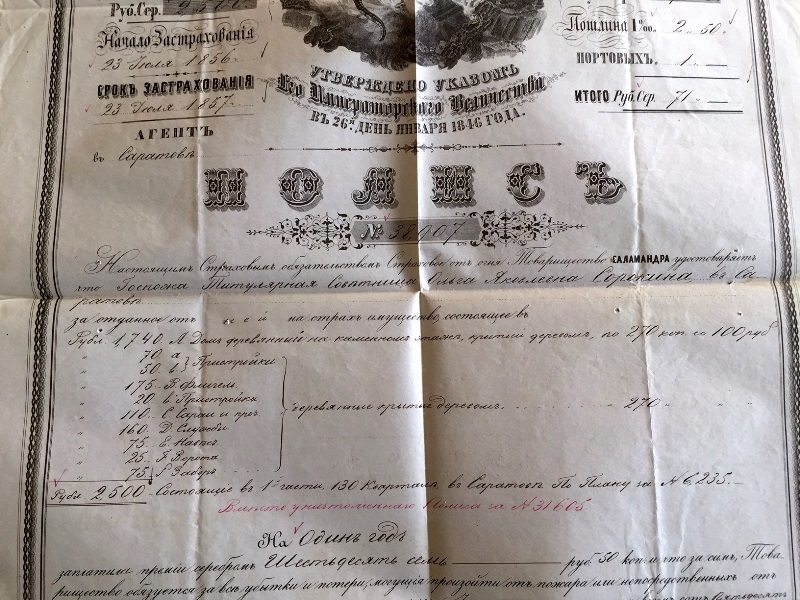 Руб. Сер.
Начало Застрахованія
23 Іюля 1856 г.
Срокъ Застрахованія
23 Іюля 1857 г.
Агентъ
въ Саратовѣ
Утверждено указомъ
Его Императорскаго Величества
въ 26й день января 1846 года.
Пошлина 1‰ 2 " 50
Портовыхъ " 1 " —
Итого Руб. Сер. 71 " —
Полисъ
№ 38907
Настоящимъ Страховымъ обязательствомъ Страховое отъ огня Товарищество Саламандра удостовѣряетъ
что Госпожа Титулярная Совѣтница Ольга Яковлевна Сорокина, въ Са-
ратовѣ
за отданное отъ ней на страх имущество, состоящее въ
Рубл. 1740. А Домъ деревянный на каменномъ этажѣ, крытый деревомъ, по 270 коп. со 100 руб
" 70 а.
" 50 b. } Пристройки
" 175. В. Флигель
" 20 b. Пристройка
" 110. С. Сараи и проч.
" 160. D. Службы
" 75. E.
" 25. F. Ворота
" 75. f. Заборъ
деревянные крытые деревомъ 270 " "
Рубл. 2,500. Состоящіе въ 1й части, 130 Кварталѣ, въ Саратовѣ По Плану за № 6,235. —
Вмѣсто уничтоженнаго Полиса за № 31605
На Одинъ годъ
заплатила преміи серебромъ Шестьдесятъ семь руб. 50 коп. и что за симъ, Това-
рищество обязуется за всѣ убытки и потери, могущія произойти отъ пожара или непосредственныхъ отъ